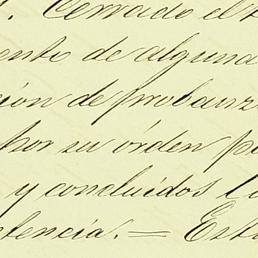 Cerrado el
ento de alguna
cion de probanz
por su órden p
y concluidos l
tencia. = Est